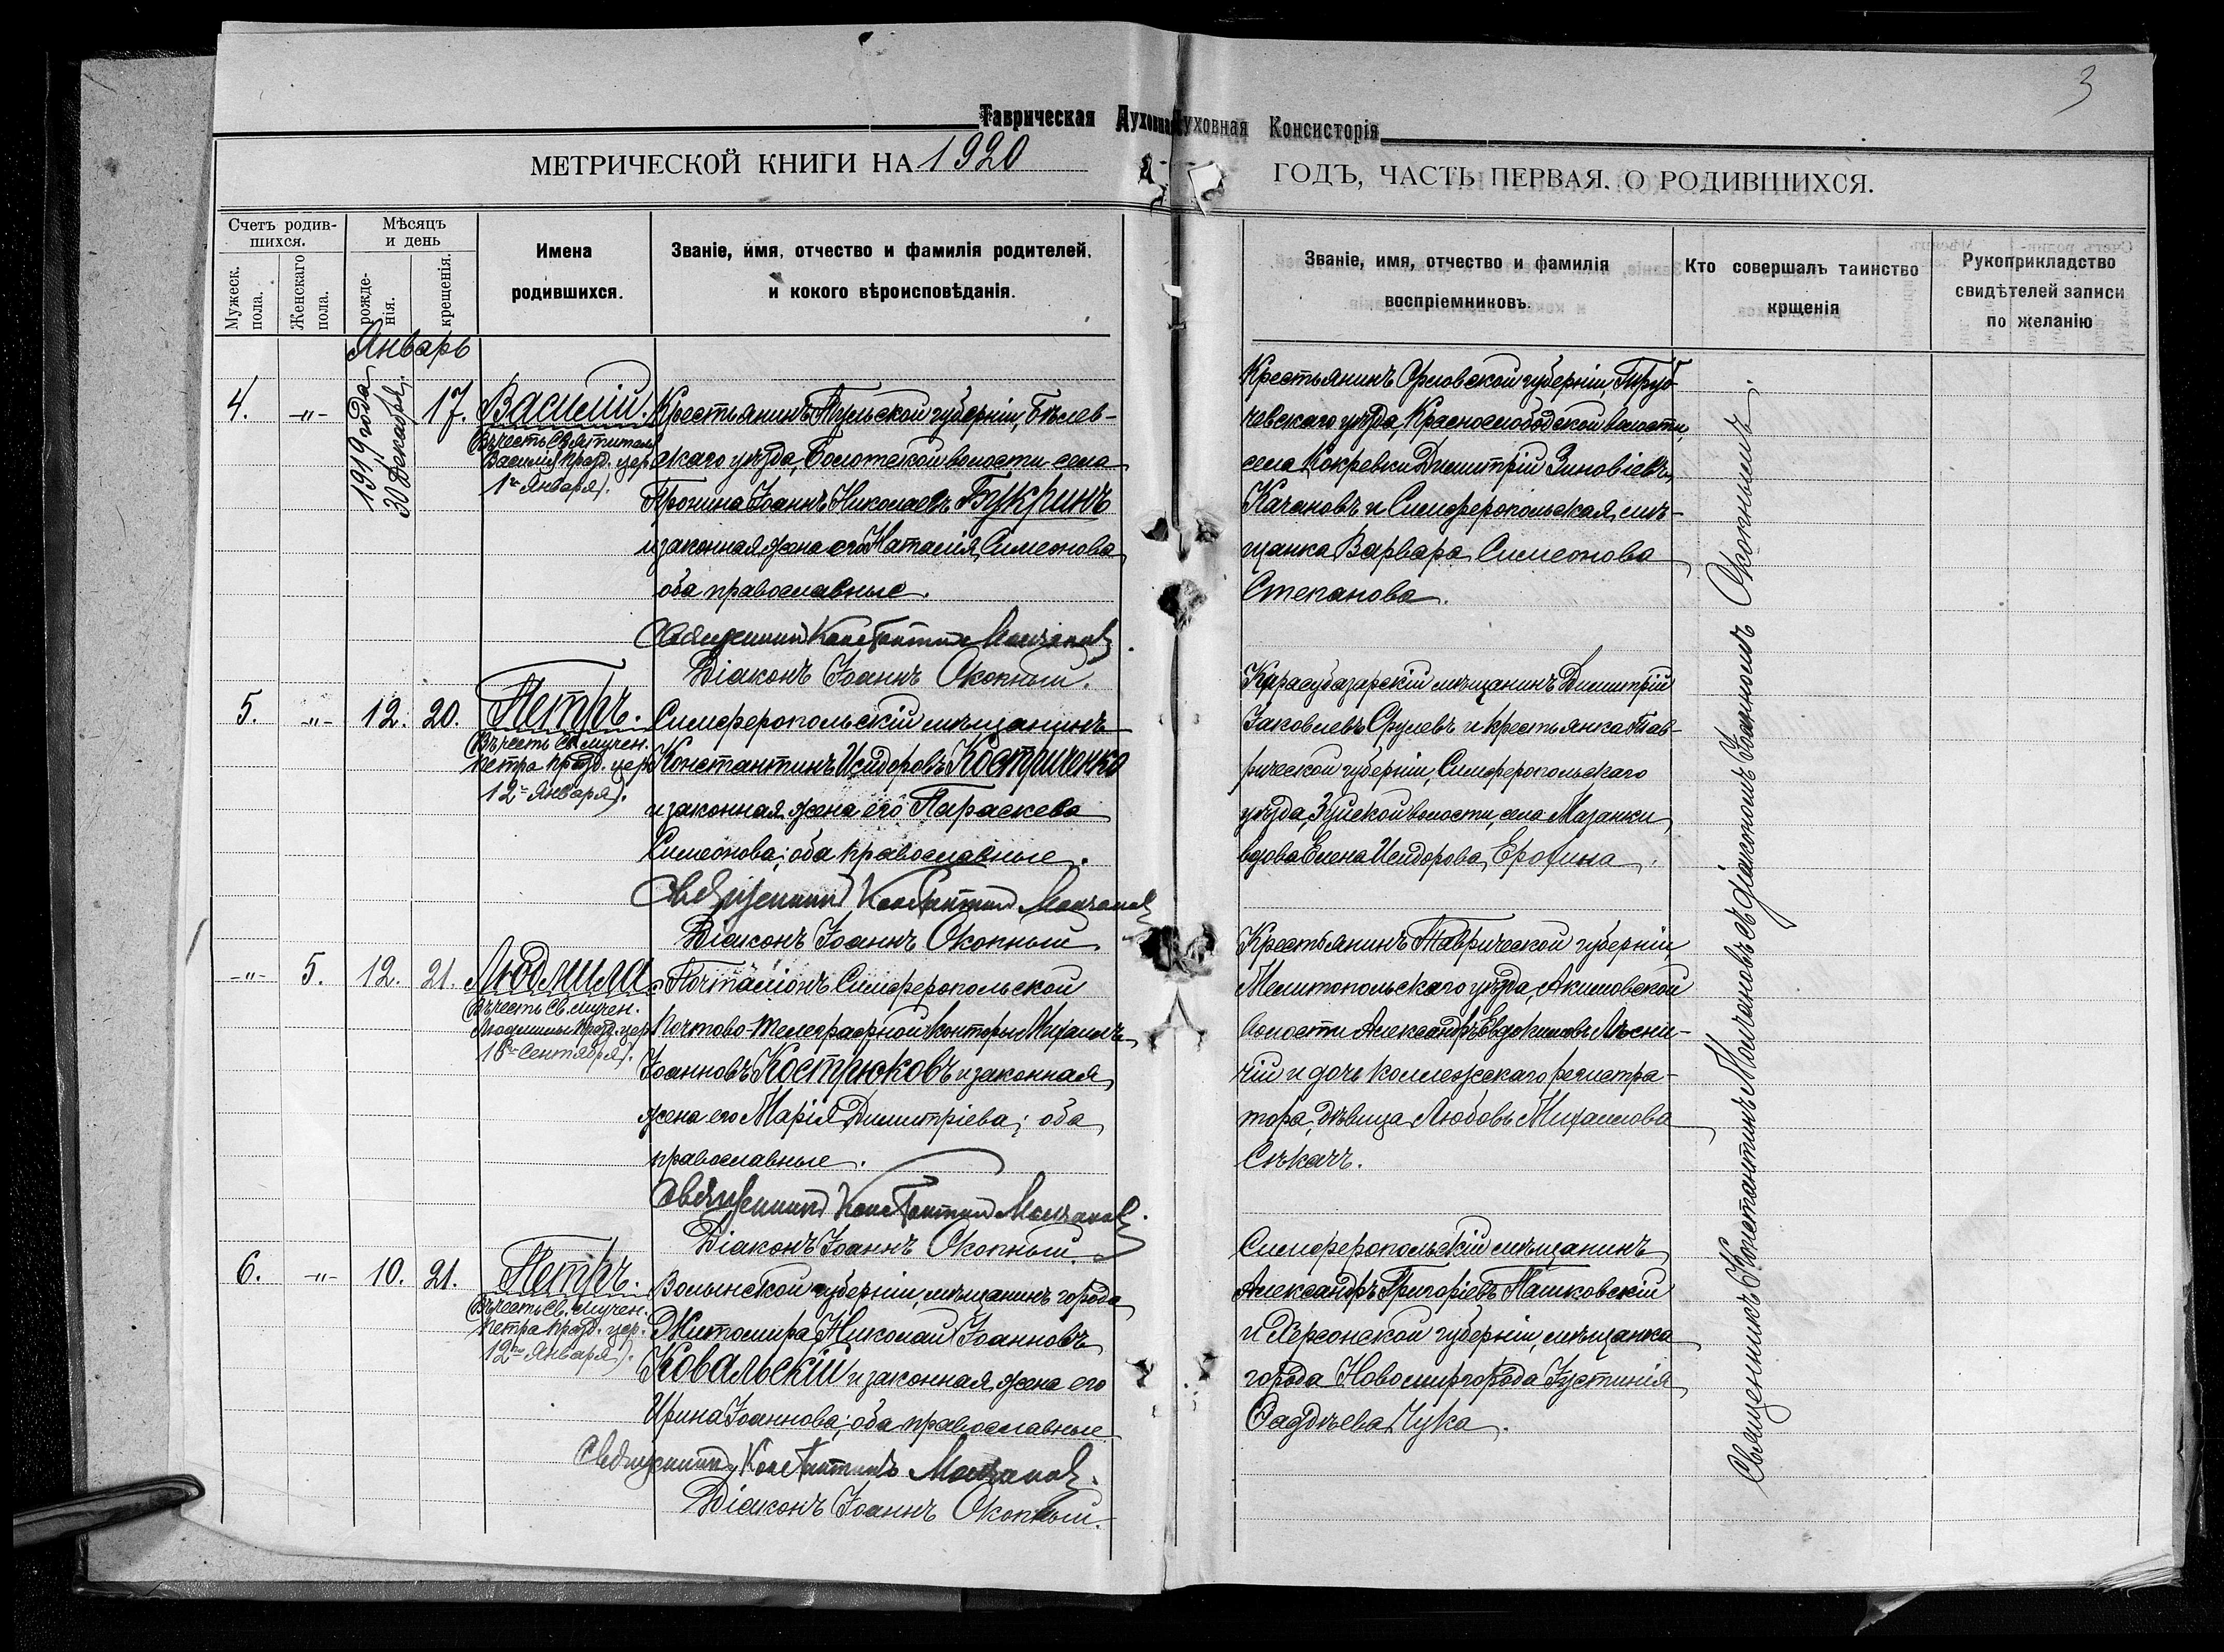 3
Таврическая Духовная Консисторія
МЕТРИЧЕСКОЙ КНИГИ НА 1920
ГОДЪ, ЧАСТЬ ПЕРВАЯ, О РОДИВШИХСЯ.
Счетъ родив-
шихся.
Мужеск.
пола.
Женскаго
пола.
Мѣсяцъ
и день
рожде-
нія.
крещенія.
Имена
родившихся.
Званіе, имя, отчество и фамилія родителей,
и кокого вѣроисповѣданія.
Званіе, имя, отчество и фамилія
воспріемниковъ.
Кто совершалъ таинство
крщенія
Рукоприкладство
свидѣтелей записи
по желанію
Январь
4.
-"-
1919 года
30 Декабря.
17.
Василій.
(Въ честь Святителя
Василія празд. цер.
1го Января).
Крестьянинъ Тульской губерніи, Бѣлев-
скаго уѣзда, Болотской волости села
Пронина Іоаннъ Николаевъ Букринъ
и законная жена его Наталія Симеонова
оба православные.
Священникъ Константинъ Молчановъ.
Діаконъ Іоаннъ Окопный.
Крестьянинъ Орловской губерніи, Труб-
чевскаго уѣзда, Краснослободской волости,
села Кокревки Димитрій Зиновіевъ
Качановъ и Симферопольская мѣ-
щанка Варвара Симеонова
Степанова.
5.
-"-
12.
20.
Петръ.
(Въ честь Св. мучен.
Петра празд. цер.
12го Января).
Симферопольскій мѣщанинъ
Константинъ Исидоровъ Костриченко
и законная жена его Параскева
Симеонова; оба православные.
Священникъ Константинъ Молчановъ
Діаконъ Іоаннъ Окопный
Карасубазарскій мѣщанинъ Димитрій
Іаковлевъ и крестьянка Тав-
рической губерніи, Симферопольскаго
уѣзда, Зуйской волости, села Мазанки,
вдова Елена Исидорова Ерохина.
-"-
5.
12.
21.
Людмила.
(Въ честь Св. мучен.
Людмилы празд. цер.
16го Сентября).
Почталіонъ Симферопольской
Почтово-Телеграфной конторы Михаилъ
Іоанновъ Кострюковъ и законная
жена его Марія Димитріева; оба
православные.
Священникъ Константинъ Молчановъ.
Діаконъ Іоаннъ Окопный.
Крестьянинъ Таврической губерніи,
Мелитопольскаго уѣзда, Акимовской
волости Александръ Евдокимовъ Лѣсни-
чій и дочь коллежскаго регистра-
тора, дѣвица Любовь Михаилова
Сѣкачъ.
6.
-"-
10.
21.
Петръ.
(Въ честь Св. мучен.
Петра празд. цер.
12го Января).
Волынской губерніи, мѣщанинъ города
Житомира Николай Іоанновъ
Ковальскій и законная жена его
Ирина Іоаннова; оба православные
Священникъ Константинъ Молчановъ.
Діаконъ Іоаннъ Окопный.
Симферопольскій мѣщанинъ
Александръ Григоріевъ Пашковскій
и Херсонской губерніи, мѣщанка
города Новомиргорода Іустинія
Ѳаддѣева Чука.
Священникъ Константинъ Молчановъ съ діакономъ Іоанномъ Окопнымъ.